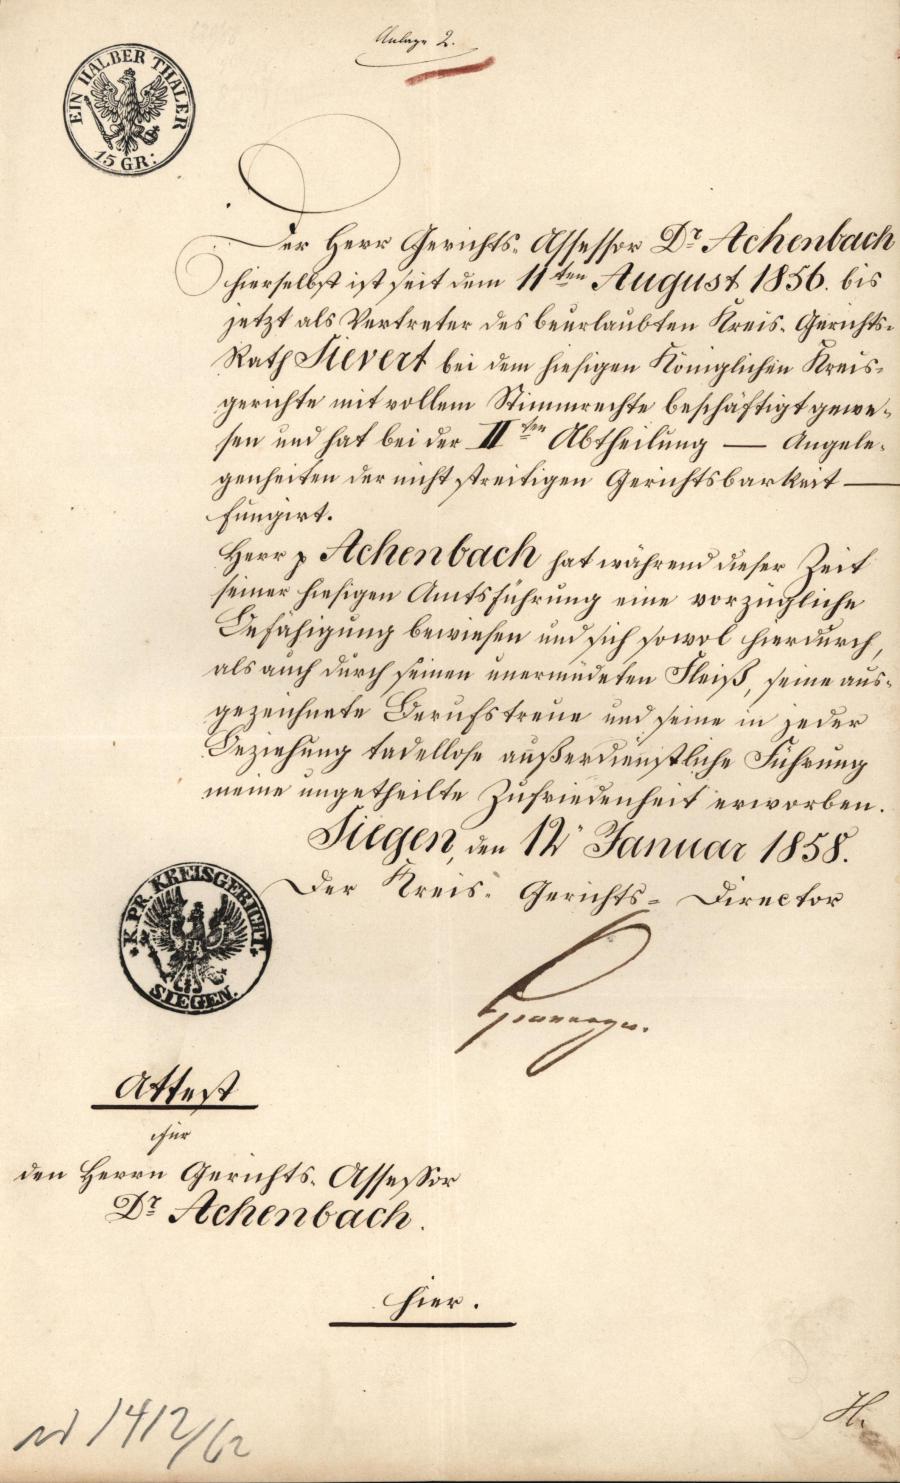 Anlage 2.
EIN HALBER THALER
15 GR:
Der Herr Gerichts-Assessor Dr Achenbach
hierselbst ist seit dem 11ten August 1856. bis
jetzt als Vertreter des beurlaubten Kreis-Gerichts-
Rath Sievert bei dem hiesigen Königlichen Kreis-
gerichte mit vollem Stimmrechte beschäftigt gewe-
sen und hat bei der IIten Abtheilung — Angele-
genheiten der nicht streitigen Gerichtsbarkeit —
fungirt.
Herr p Achenbach hat während dieser Zeit
seiner hiesigen Amtsführung eine vorzügliche
Befähigung bewiesen und sich sowol hierdurch,
als auch durch seinen unermüdeten Fleiß, seine aus-
gezeichnete Berufstreue und seine in jeder
Beziehung tadellose außerdienstliche Führung
meine ungetheilte Zufriedenheit erworben.
Siegen, den 12 Januar 1858.
Der Kreis-Gerichts-Director
K. PR. KREISGERICHT.
SIEGEN.
Attest
für
den Herrn Gerichts-Assessor
Dr Achenbach.
hier.
1412/62
H.